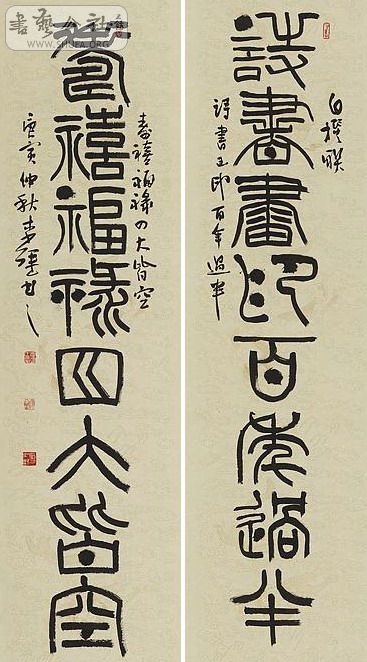 自撰聯
詩書畫印百年過半
詩書画印百年過半
壽禧福祿四大皆空
壽禧福祿四大皆空
庚寅仲秋李
書藝公社
WWW.SHUFA.ORG